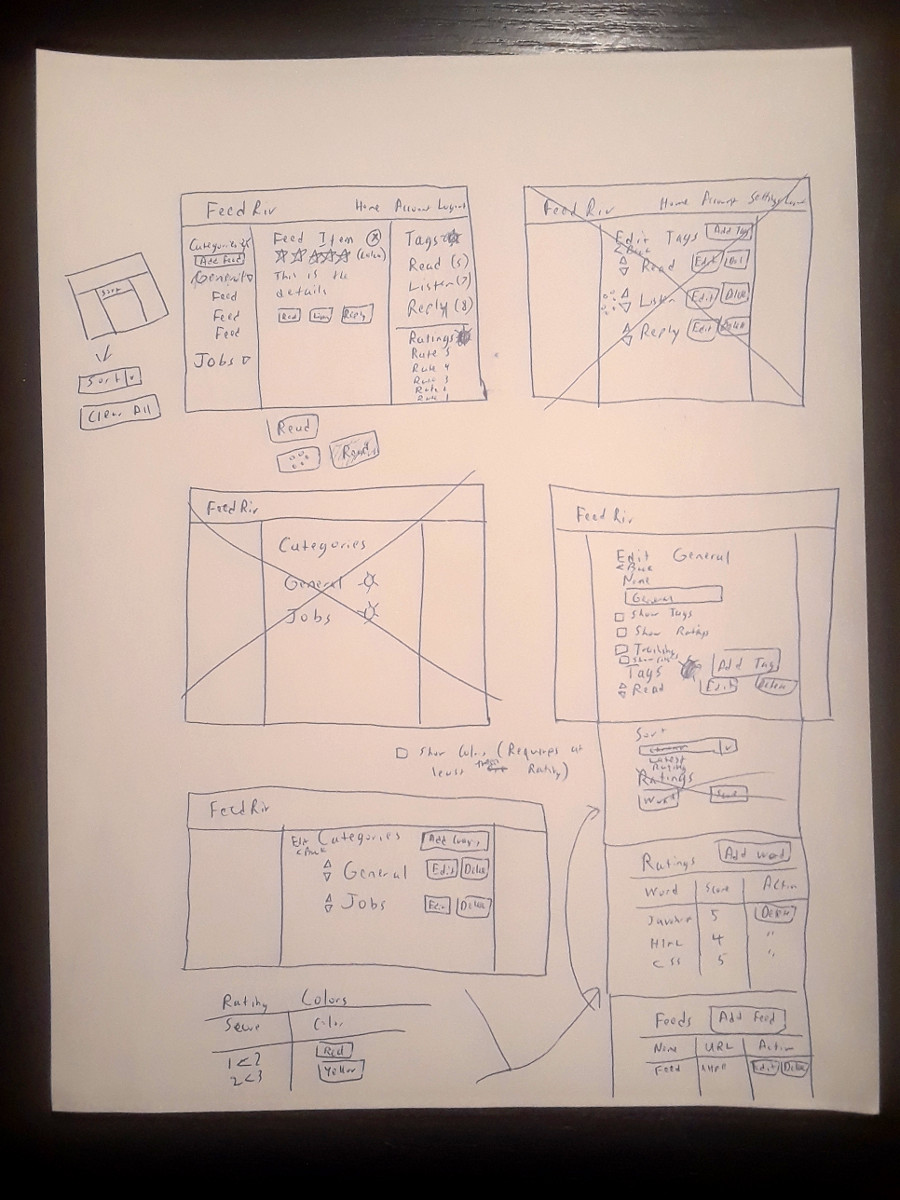 Feed Riv Home Account Logout
Categories
Add Feed
General
Feed
Feed
Feed
Jobs
Feed Item (x)
(Color)
This is the
details
Read Listen Reply
Tags
Read (5)
Listen (7)
Reply (8)
Ratings
Rate 5
Rate 4
Rate 3
Rate 2
Rate 1
Sort
Sort
Clear All
Read
Read
Feed Riv Home Account Settings Logout
Edit Tags Add Tag
< Back
Read Edit Del
Listen Edit Delete
Reply Edit Delete
Feed Riv
Categories
General
Jobs
Feed Riv
Edit General
< Back
Name
General
Show Tags
Show Ratings
Tracking
Tags Add Tag
Read Edit Delete
Sort
Latest
Rating
Ratings
Word Score
Ratings Add Word
Word Score Action
5 Delete
HTML 4 "
CSS 5 "
Feeds Add Feed
Name URL Action
Feed Edit Delete
Show Color (Requires at
least Rating)
Feed Riv
Edit Categories
< Back
General Edit Delete
Jobs Edit Delete
Rating Colors
Score Color
1<2 Red
2<3 Yellow